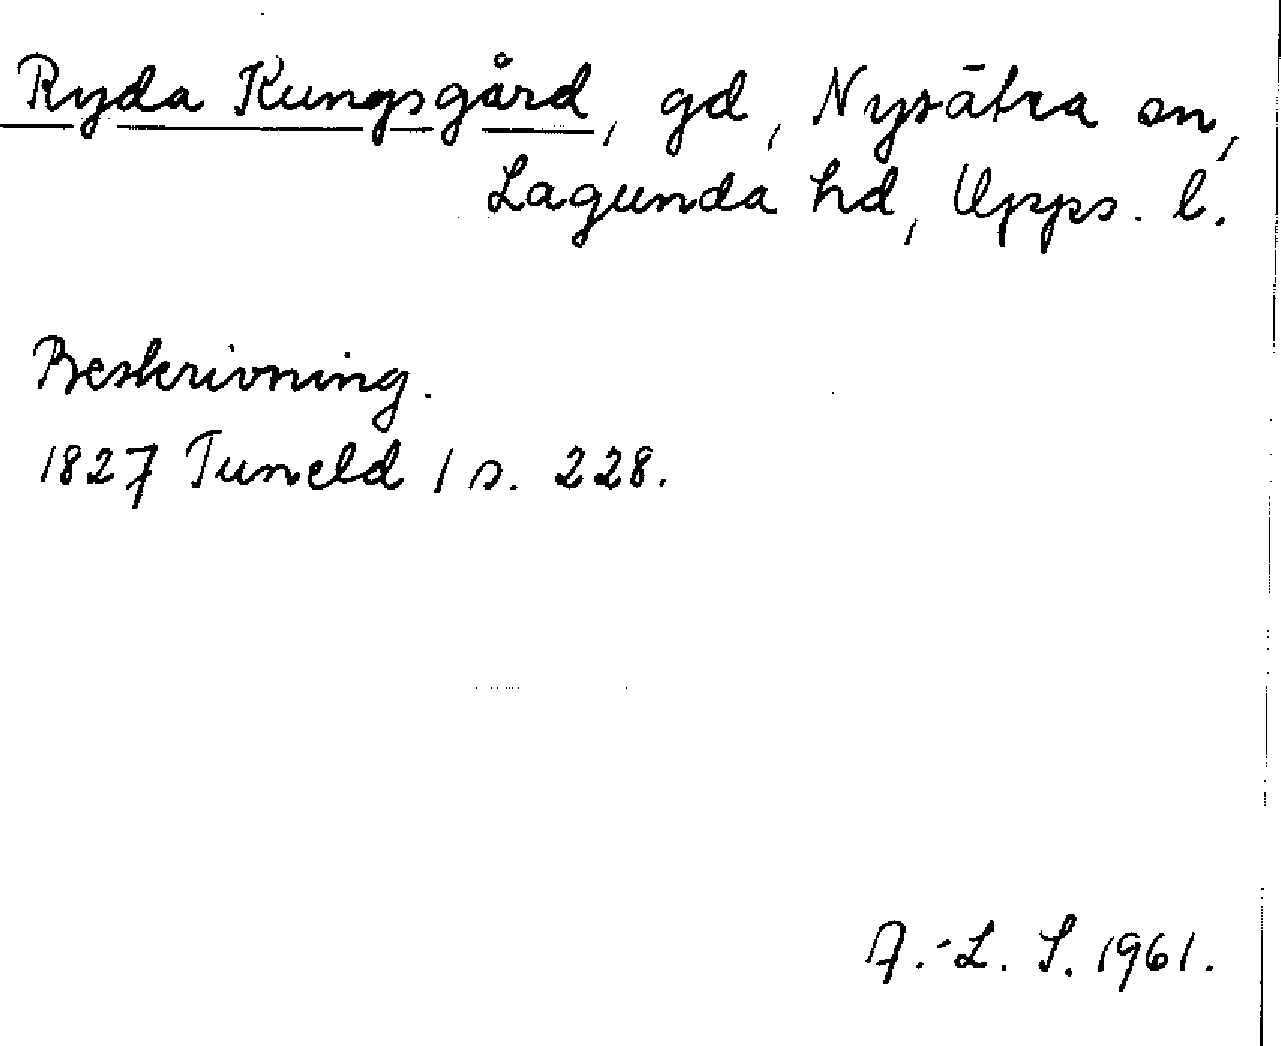 Ryda Kungsgård, gd, Nysätra sn,
Lagunda hd, Upps. l.
Beskrivning.
1827 Tuneld 1 s. 228.
A.-L. S. 1961.